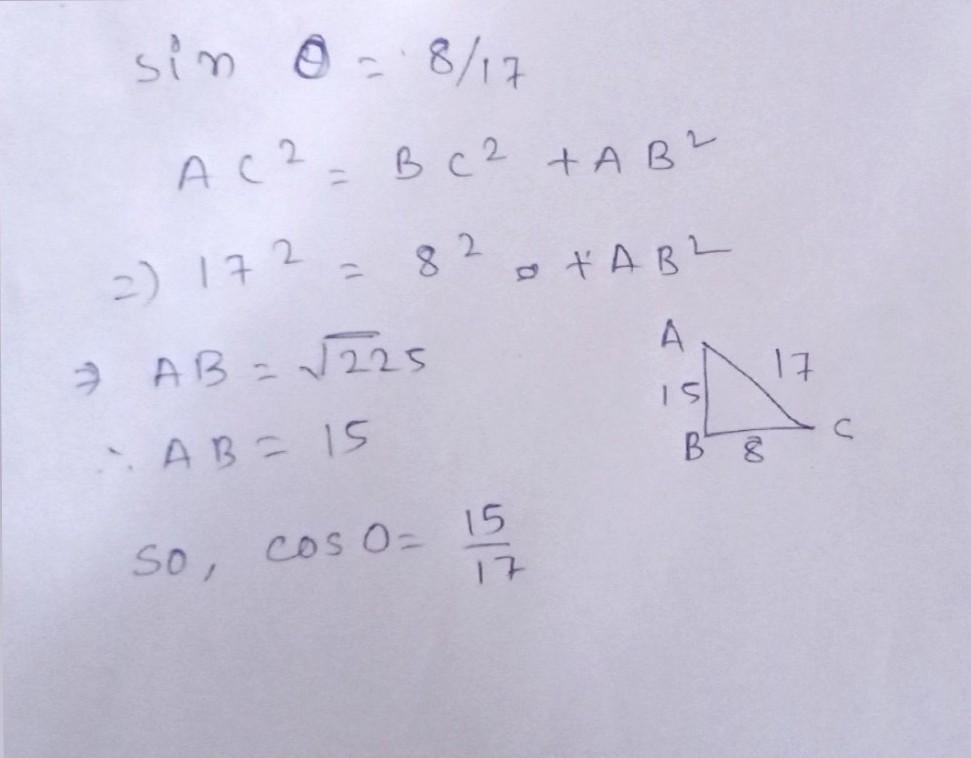 sin θ = 8/17
AC² = BC² + AB²
=) 17² = 8² + AB²
⇒ AB = √225
∴ AB = 15
A
17
15
B 8 C
so, cos θ = 15/17